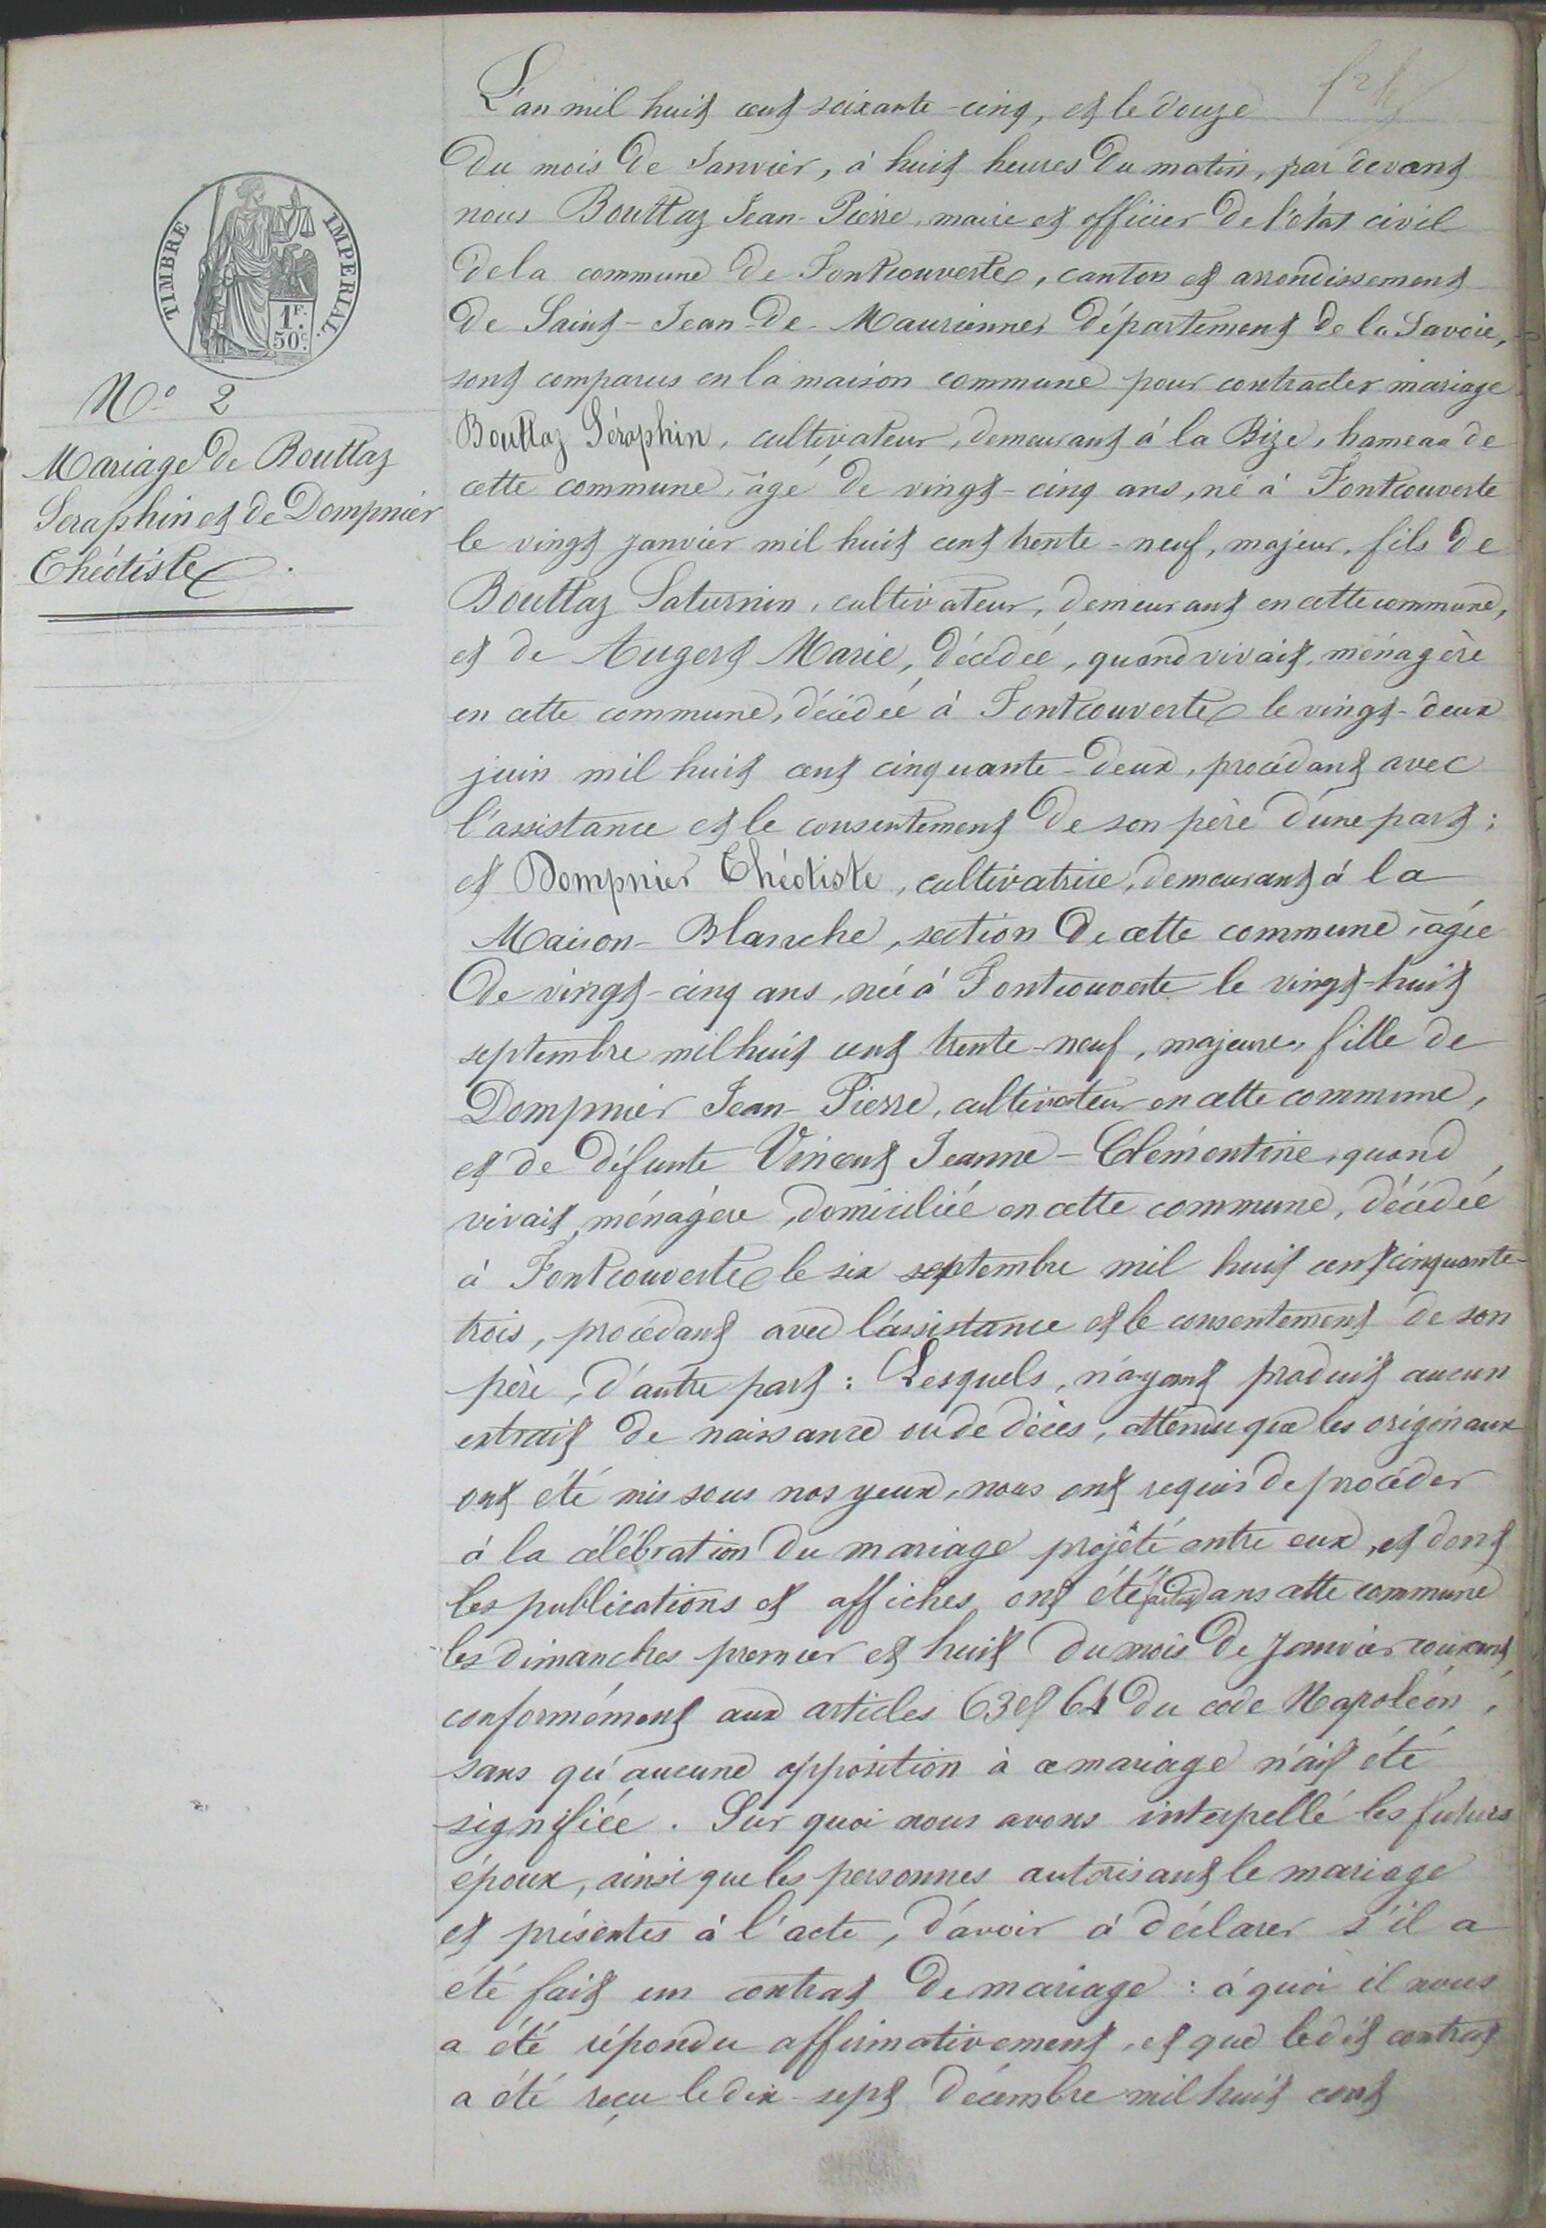 L'an mil huit cent soixante-cinq, et le douze
du mois de Janvier, à huit heures du matin, par devant
nous Bouttaz Jean-Pierre, maire et officier de l'état civil
de la commune de Fontcouverte, canton et arrondissement
de Saint-Jean-de-Maurienne, département de la Savoie,
sont comparus en la maison commune pour contracter mariage
Bouttaz Séraphin, cultivateur, demeurant à la Bize, hameau de
cette commune, âgé de vingt-cinq ans, né à Fontcouverte
le vingt janvier mil huit cent trente-neuf, majeur, fils de
Bouttaz Saturnin, cultivateur, demeurant en cette commune,
et de Augert Marie, décédée, quand vivait, ménagère
en cette commune, décédée à Fontcouverte le vingt-deux
juin mil huit cent cinquante-deux, procédant avec
l'assistance et le consentement de son père d'une part;
et Dompnier Théotiste, cultivatrice, demeurant à la
Maison-Blanche, section de cette commune, âgée
de vingt-cinq ans, née à Fontcouverte le vingt-huit
septembre mil huit cent trente-neuf, majeure, fille de
Dompnier Jean-Pierre, cultivateur en cette commune,
et de défunte Vincent Jeanne-Clémentine, quand
vivait, ménagère, domiciliée en cette commune, décédée
à Fontcouverte le six septembre mil huit cent cinquante-
trois, procédant avec l'assistance et le consentement de son
père, d'autre part: Lesquels, n'ayant produit aucun
extrait de naissance ou de décès, attendu que les originaux
ont été mis sous nos yeux, nous ont requis de procéder
à la célébration du mariage projeté entre eux, et dont
les publications et affiches ont été faites dans cette commune
les dimanches premier et huit du mois de Janvier courant
conformément aux articles 63 et 64 du code Napoléon,
sans qu'aucune opposition à ce mariage n'ait été
signifiée. Sur quoi nous avons interpellé les futurs
époux, ainsi que les personnes autorisant le mariage
et présentes à l'acte, d'avoir à déclarer s'il a
été fait un contrat de mariage: à quoi il nous
a été répondu affirmativement, et que ledit contrat
a été reçu le dix-sept décembre mil huit cent
TIMBRE IMPERIAL.
1F.
50c.
N° 2
Mariage de Bouttaz
Seraphin et de Dompnier
Théotiste.